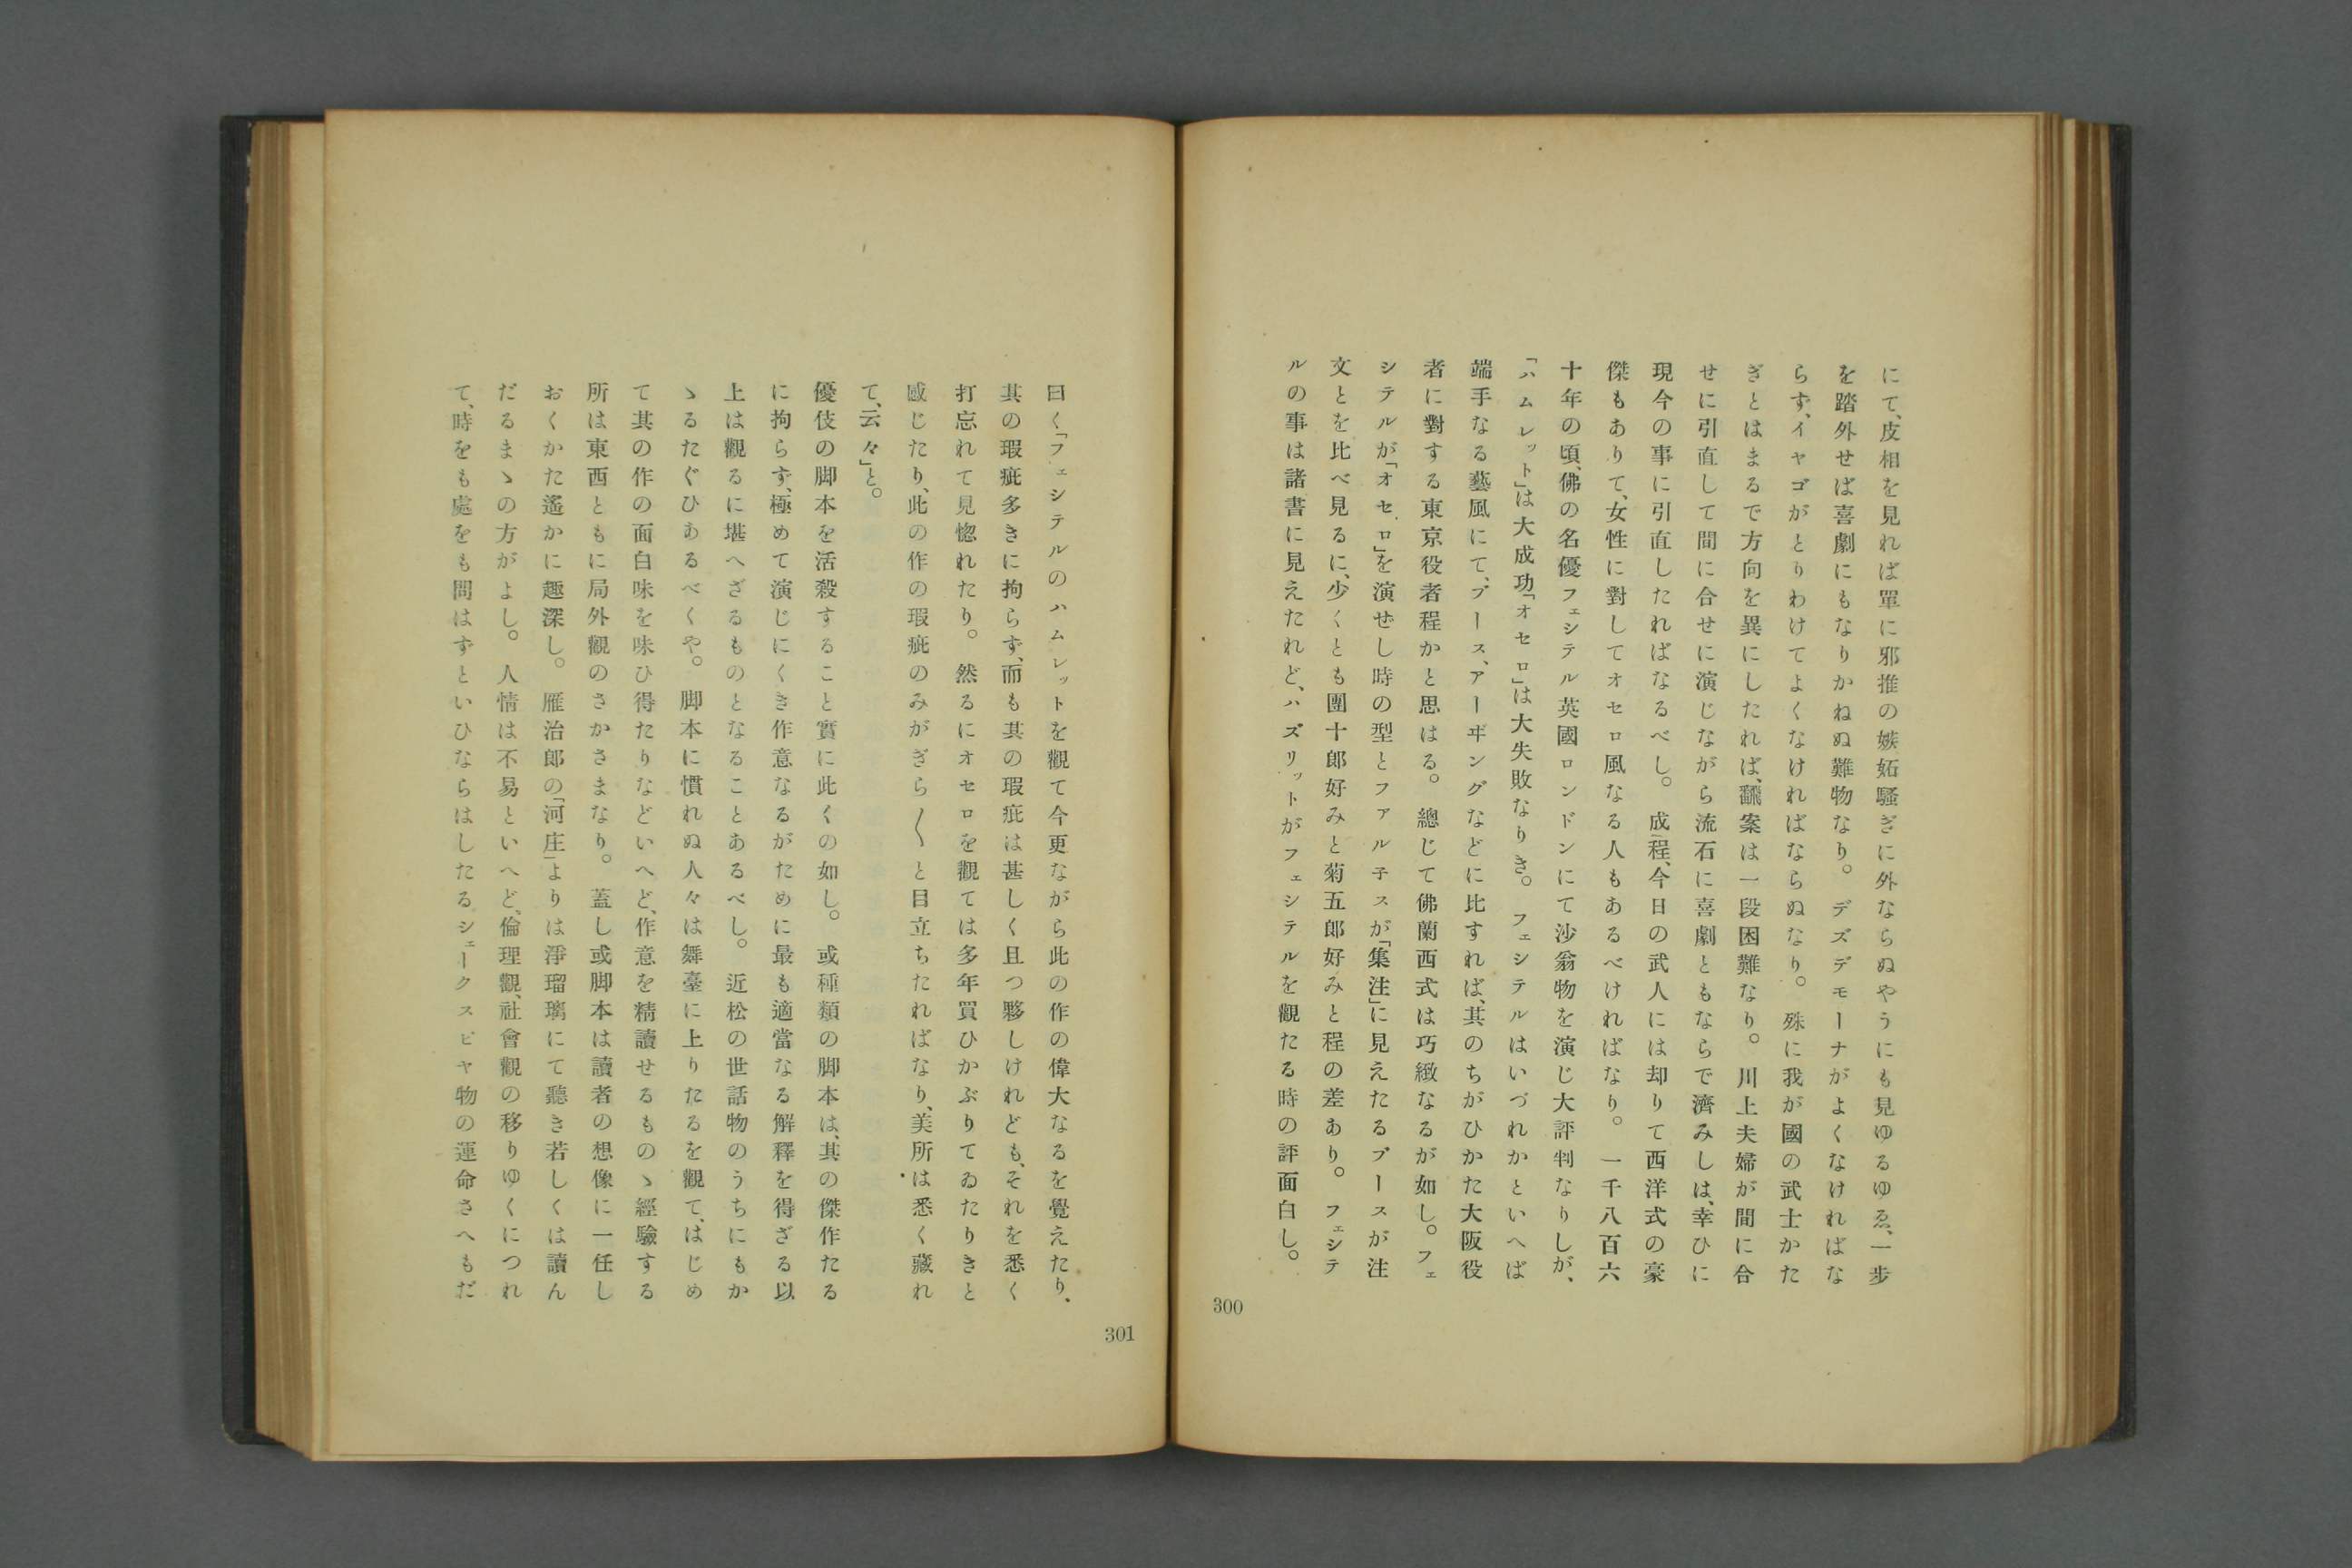 にて、皮相を見れば單に邪推の嫉妬騷ぎに外ならぬやうにも見ゆるゆゑ、一步
を踏外せば喜劇にもなりかねぬ難物なり。デズデモーナがよくなければな
らず、イヤゴがとりわけてよくなければならぬなり。殊に我が國の武士かた
ぎとはまるで方向を異にしたれば、飜案は一段困難なり。川上夫婦が間に合
せに引直して間に合せに演じながら流石に喜劇ともならで濟みしは、幸ひに
現今の事に引直したればなるべし。成程、今日の武人には却りて西洋式の豪
傑もありて、女性に對してオセロ風なる人もあるべければなり。一千八百六
十年の頃、佛の名優フェシテル英國ロンドンにて沙翁物を演じ大評判なりしが、
「ハムレット」は大成功「オセロ」は大失敗なりき。フェシテルはいづれかといへば
端手なる藝風にて、ブース、アーヰングなどに比すれば、其のちがひかた大阪役
者に對する東京役者程かと思はる。總じて佛蘭西式は巧緻なるが如し。フェ
シテルが「オセロ」を演せし時の型とファル子スが「集注」に見えたるブースが注
文とを比べ見るに、少くとも團十郎好みと菊五郎好みと程の差あり。フェシテ
ルの事は諸書に見えたれど、ハズリットがフェシテルを觀たる時の評面白し。
300
曰く「フェシテルのハムレットを觀て今更ながら此の作の偉大なるを覺えたり、
其の瑕疵多きに拘らず、而も其の瑕疵は甚しく且つ夥しけれども、それを悉く
打忘れて見惚れたり。然るにオセロを觀ては多年買ひかぶりてゐたりきと
感じたり、此の作の瑕疵のみがぎら〱と目立ちたればなり、美所は悉く藏れ
て、云々」と。
優伎の脚本を活殺すること實に此くの如し。或種類の脚本は、其の傑作たる
に拘らず、極めて演じにくき作意なるがために最も適當なる解釋を得ざる以
上は觀るに堪へざるものとなることあるべし。近松の世話物のうちにもか
ゝるたぐひあるべくや。脚本に慣れぬ人々は舞臺に上りたるを觀て、はじめ
て其の作の面白味を味ひ得たりなどいへど、作意を精讀せるものゝ經驗する
所は東西ともに局外觀のさかさまなり。蓋し或脚本は讀者の想像に一任し
おくかた遙かに趣深し。雁治郎の「河庄」よりは淨瑠璃にて聽き若しくは讀ん
だるまゝの方がよし。人情は不易といへど、倫理觀、社會觀の移りゆくにつれ
て、時をも處をも問はずといひならはしたるシェークスピヤ物の運命さへもだ
301